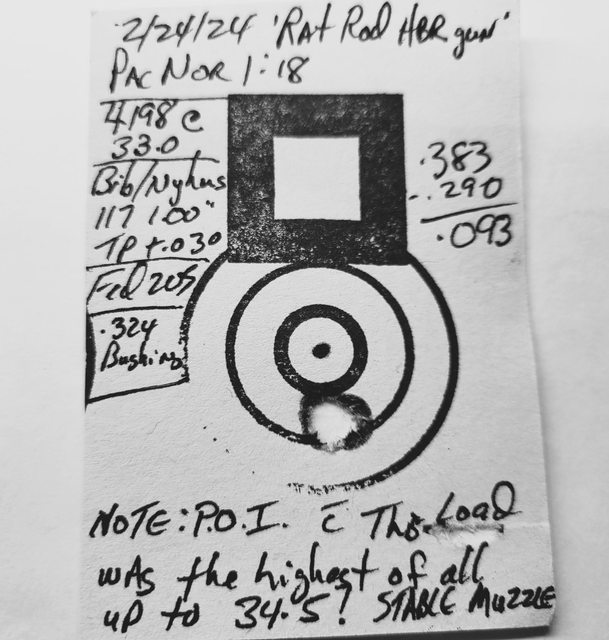 2/24/24 'Rat Rod HBR gun'
Pac Nor 1:18
4198 @
33.0
Bib/Nyhus
117 1.00"
TP +.030
Fed 205
.324
Bushing
.383
-.290
.093
NOTE: P.O.I. c̄ This Load
was the highest of all
up to 34.5! STABLE MUZZLE